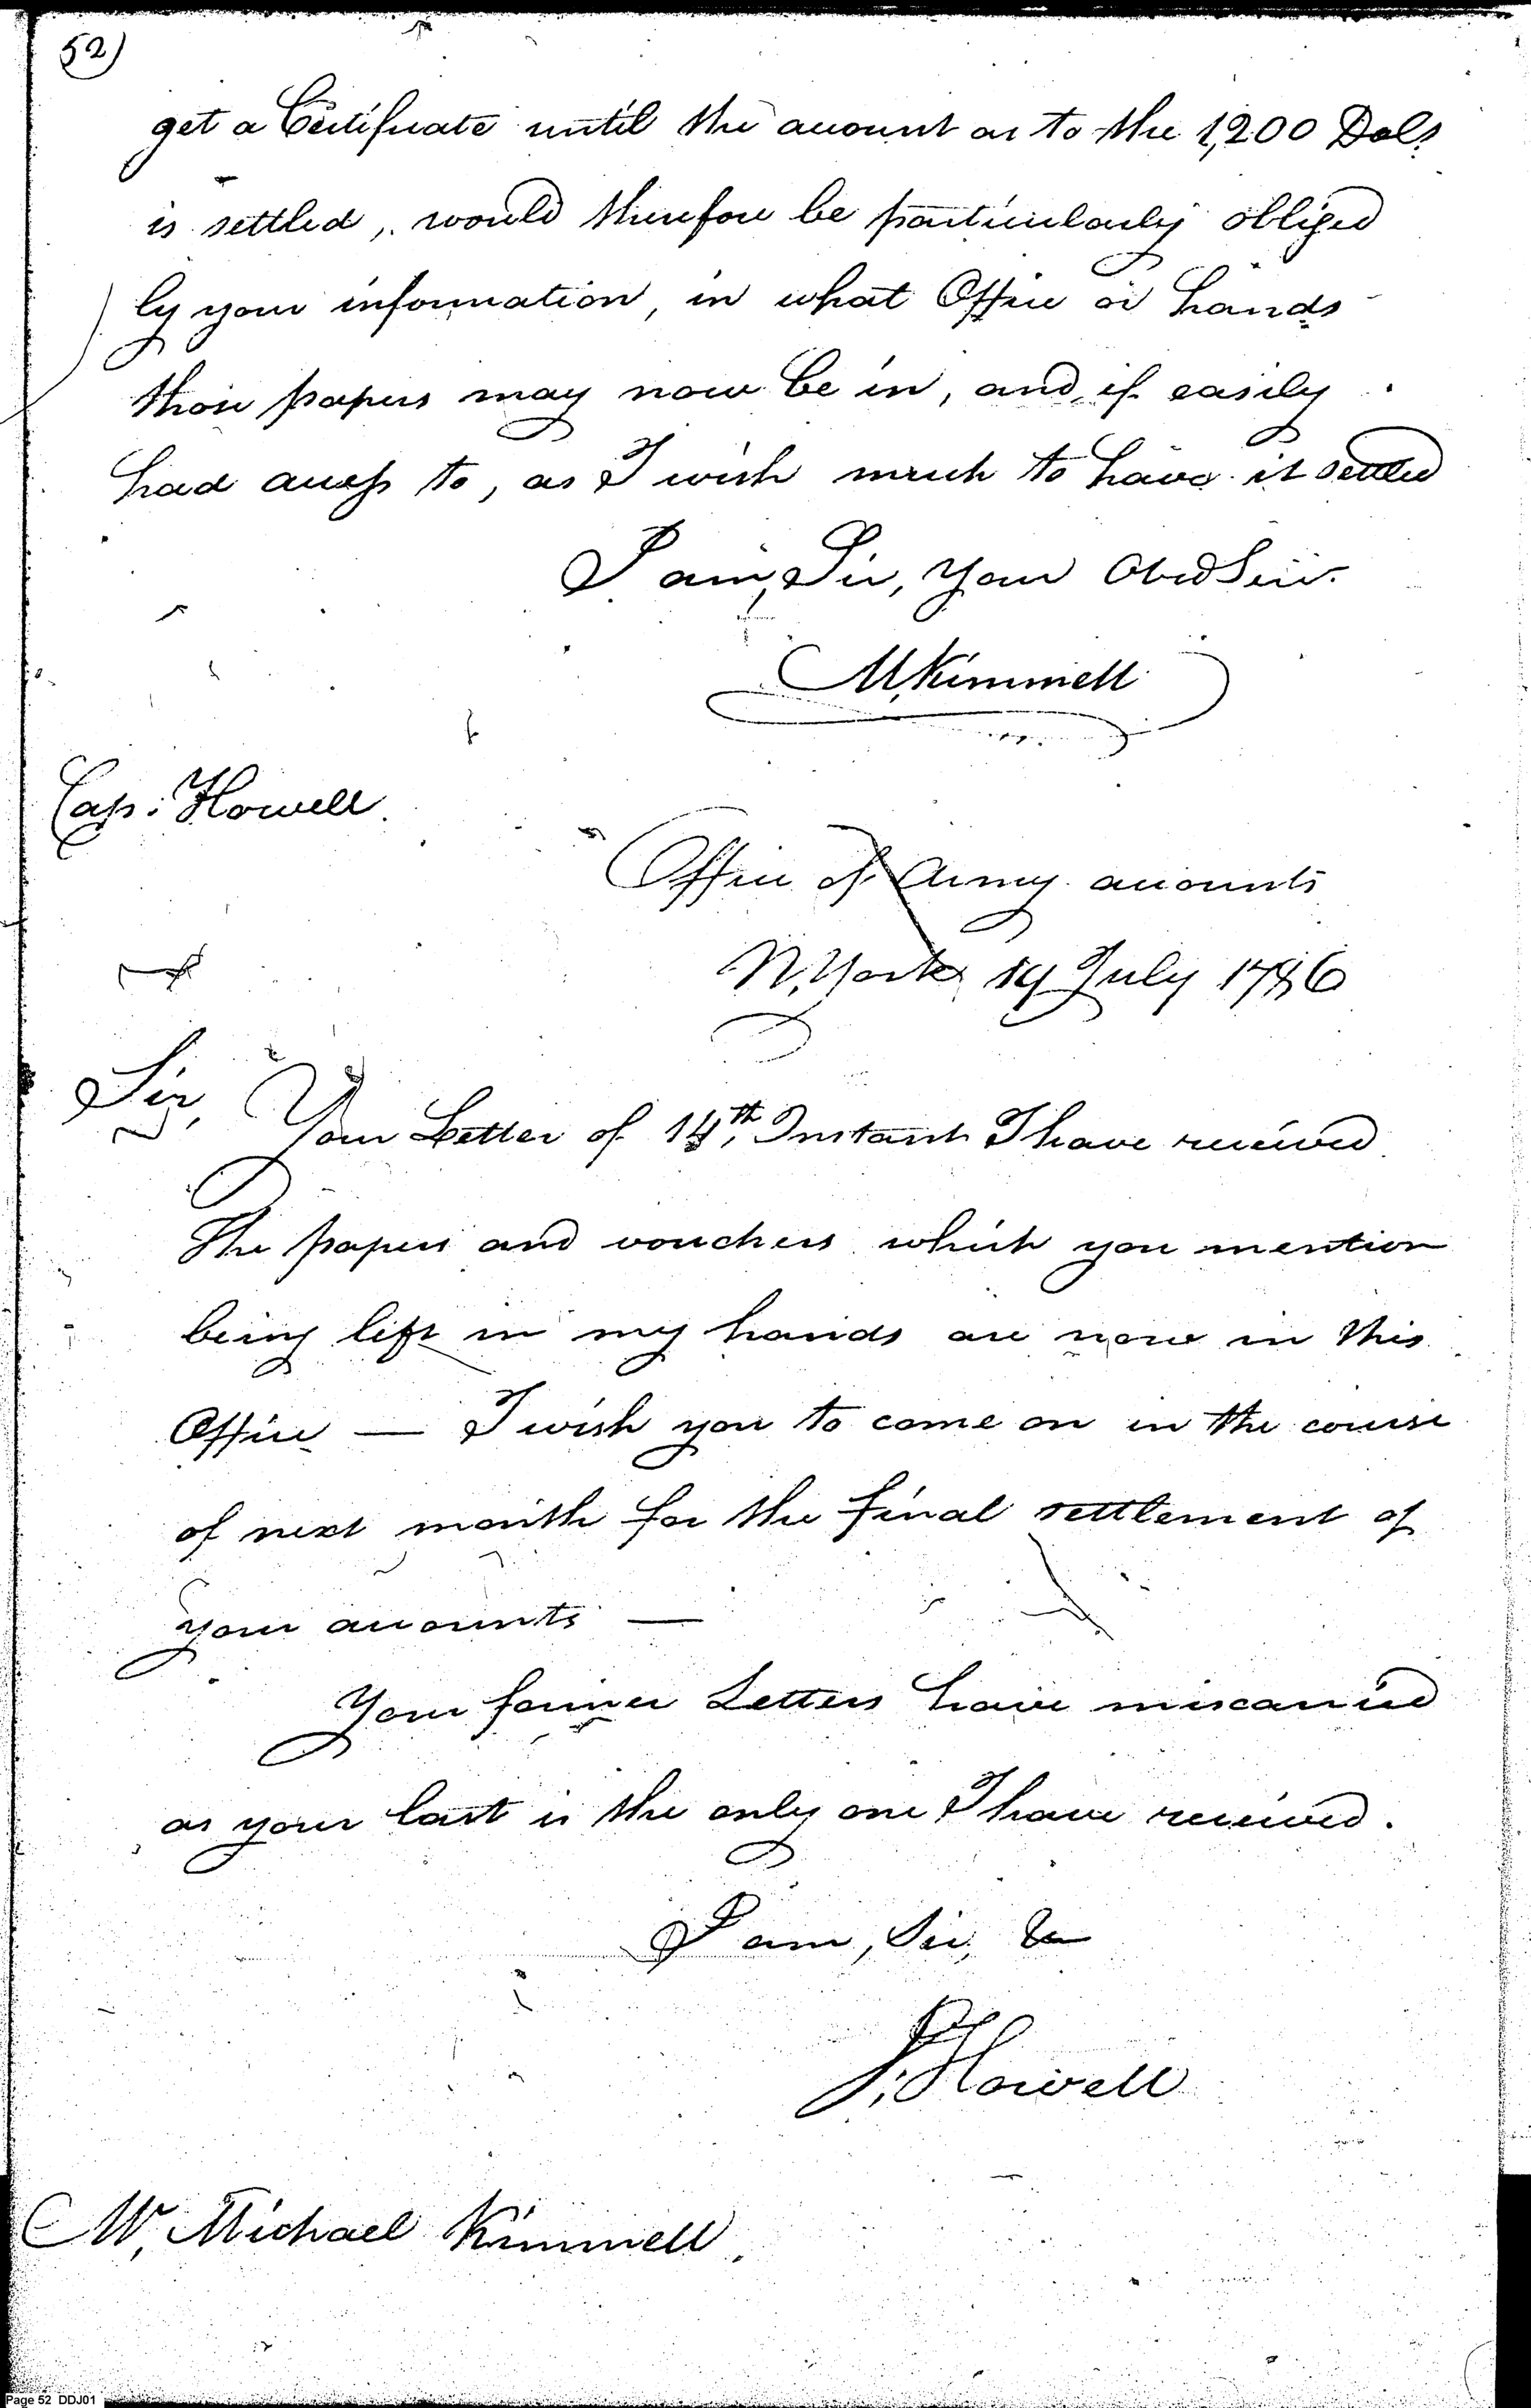 52)
get a Certificate until the account as to the 1,200 Dols
is settled, would therefore be particularly obliged
by your information, in what Office or hands
those papers may now be in, and, if easily
had access to, as I wish much to have it settled
I am, Sir, your Obed Serv.
M. Kimmell
Cap: Howell.
Office of Army accounts
N. York 19 July 1786
Sir,
Your Letter of 14th, Instant I have received
The papers and vouchers which you mention
being left in my hands are now in this
Office — I wish you to come on in the course
of next month for the final settlement of
your accounts —
Your former Letters have miscarried
as your last is the only one I have received.
I am, Sir, &c
J. Howell
Mr, Michael Kimmell.
Page 52 DDJ01